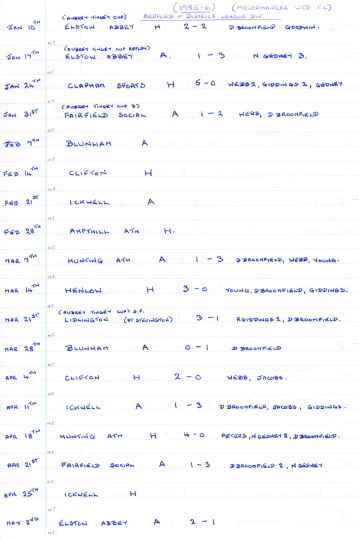 (1985-6) (MCCORMANCES UTD F.C)
(AUBREY TINGEY CUP) BEDFORD & DISTRICT LEAGUE DIV.
JAN 10TH ELSTON ABBEY H 2-2 D BROOMFIELD GOODWIN.
(AUBREY TINGEY CUP REPLAY)
JAN 17TH ELSTON ABBEY A. 1-3 N GEDNEY 3.
JAN 24TH CLAPHAM SPORTS H 5-0 WEBB 2, GIDDINGS 2, GEDNEY
(AUBREY TINGEY CUP 3)
JAN 31ST FAIRFIELD SOCIAL A 1-2 WEBB, D BROOMFIELD
FEB 7TH BLUNHAM A
FEB 14TH CLIFTON H
FEB 21ST ICKWELL A
FEB 28TH AMPTHILL ATH H.
MAR 7TH HUNTING ATH A 1-3 D BROOMFIELD, WEBB, YOUNG.
MAR 14TH HENLOW H 3-0 YOUNG, D BROOMFIELD, GIDDINGS.
(AUBREY TINGEY CUP) S.F.
MAR 21ST LIDLINGTON (AT STEVINGTON) 3-1 R GIDDINGS 2, D BROOMFIELD.
MAR 28TH BLUNHAM A 0-1 D BROOMFIELD
APR 4TH CLIFTON H 2-0 WEBB, JACOBS.
APR 11TH ICKWELL A 1-3 D BROOMFIELD, JACOBS, GIDDINGS.
APR 18TH HUNTING ATH H 4-0 PETERS, N GEDNEY 2, D BROOMFIELD.
APR 21ST FAIRFIELD SOCIAL A 1-3 D BROOMFIELD 2, N GEDNEY
APR 25TH ICKWELL H
MAY 2ND ELSTON ABBEY A 2-1